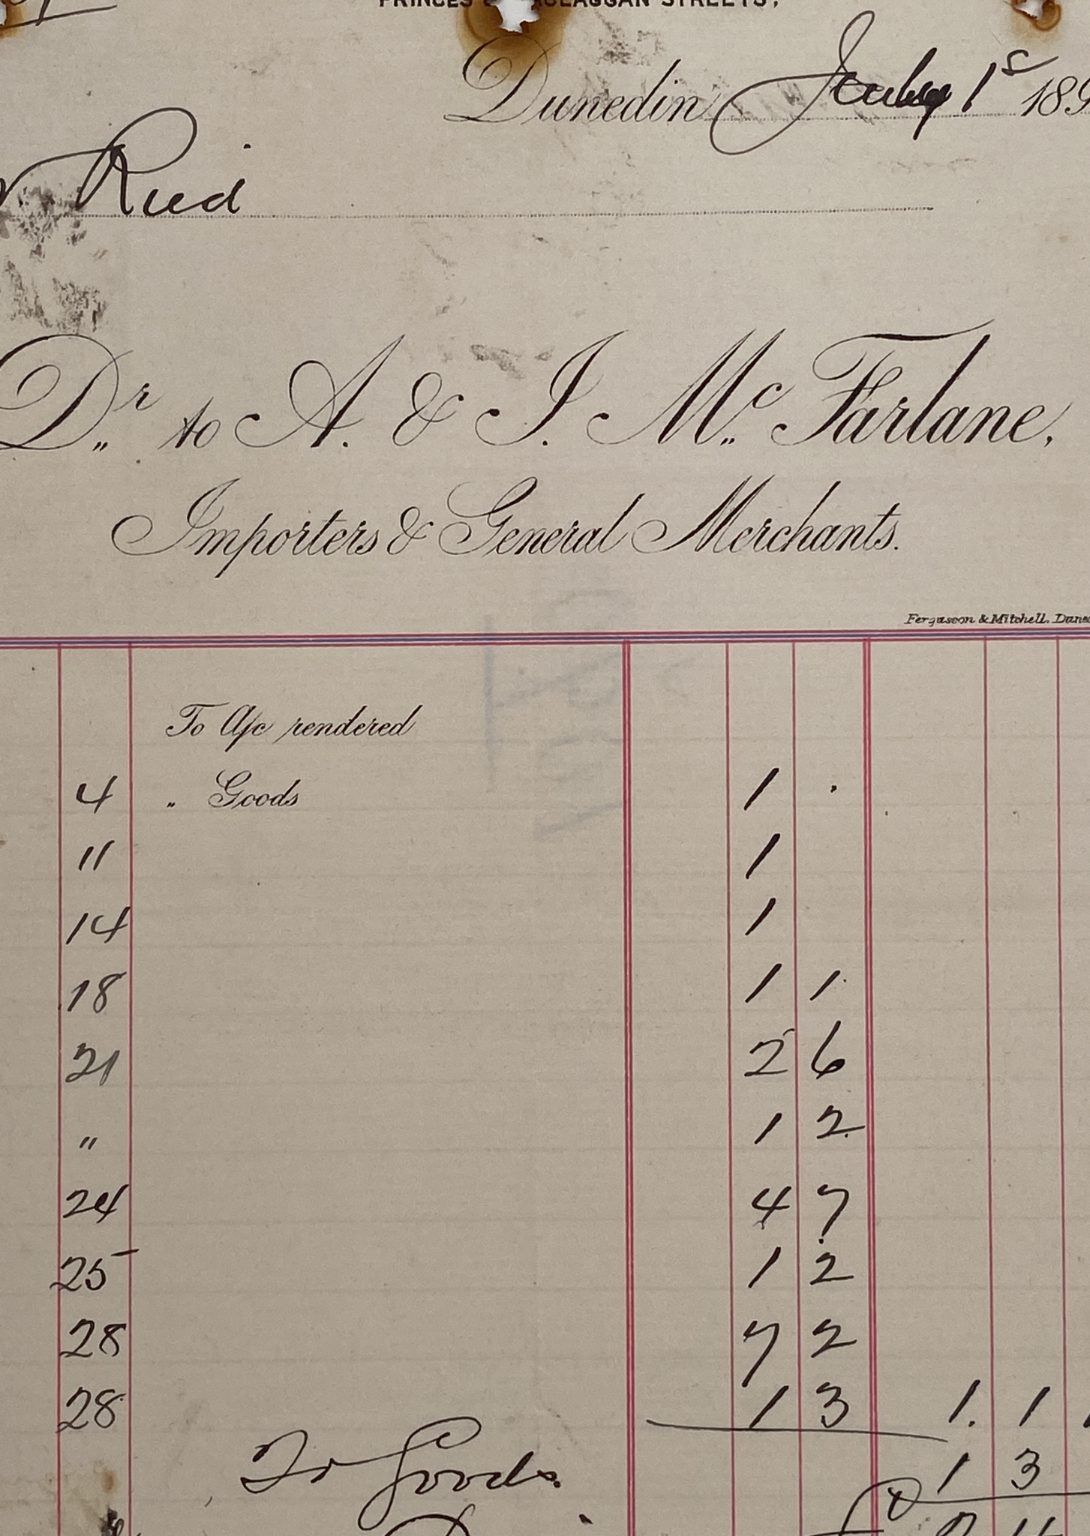 PRINCES & MACLAGGAN STREETS,
Dunedin July 1st 189
Reid
Dr. to A. & J. McFarlane,
Importers & General Merchants.
Fergusson & Mitchell. Dune
To A/c rendered
4 „ Goods 1 .
11 1
14 1
18 1 1
21 2 6
" 1 2
24 4 7
25 1 2
28 7 2
28 1 3 1. 1 1
To Goods 1 3